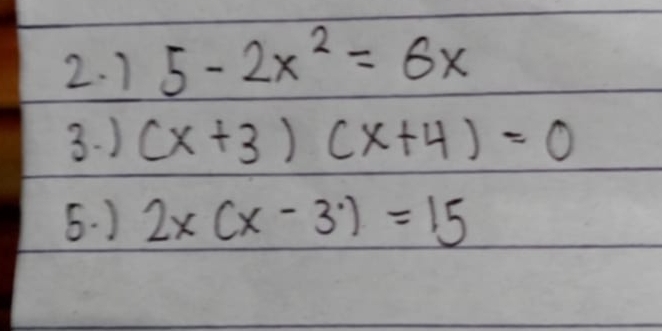 2.) 5 - 2x² = 6x
3.) (x + 3) (x + 4) = 0
5.) 2x (x - 3) = 15